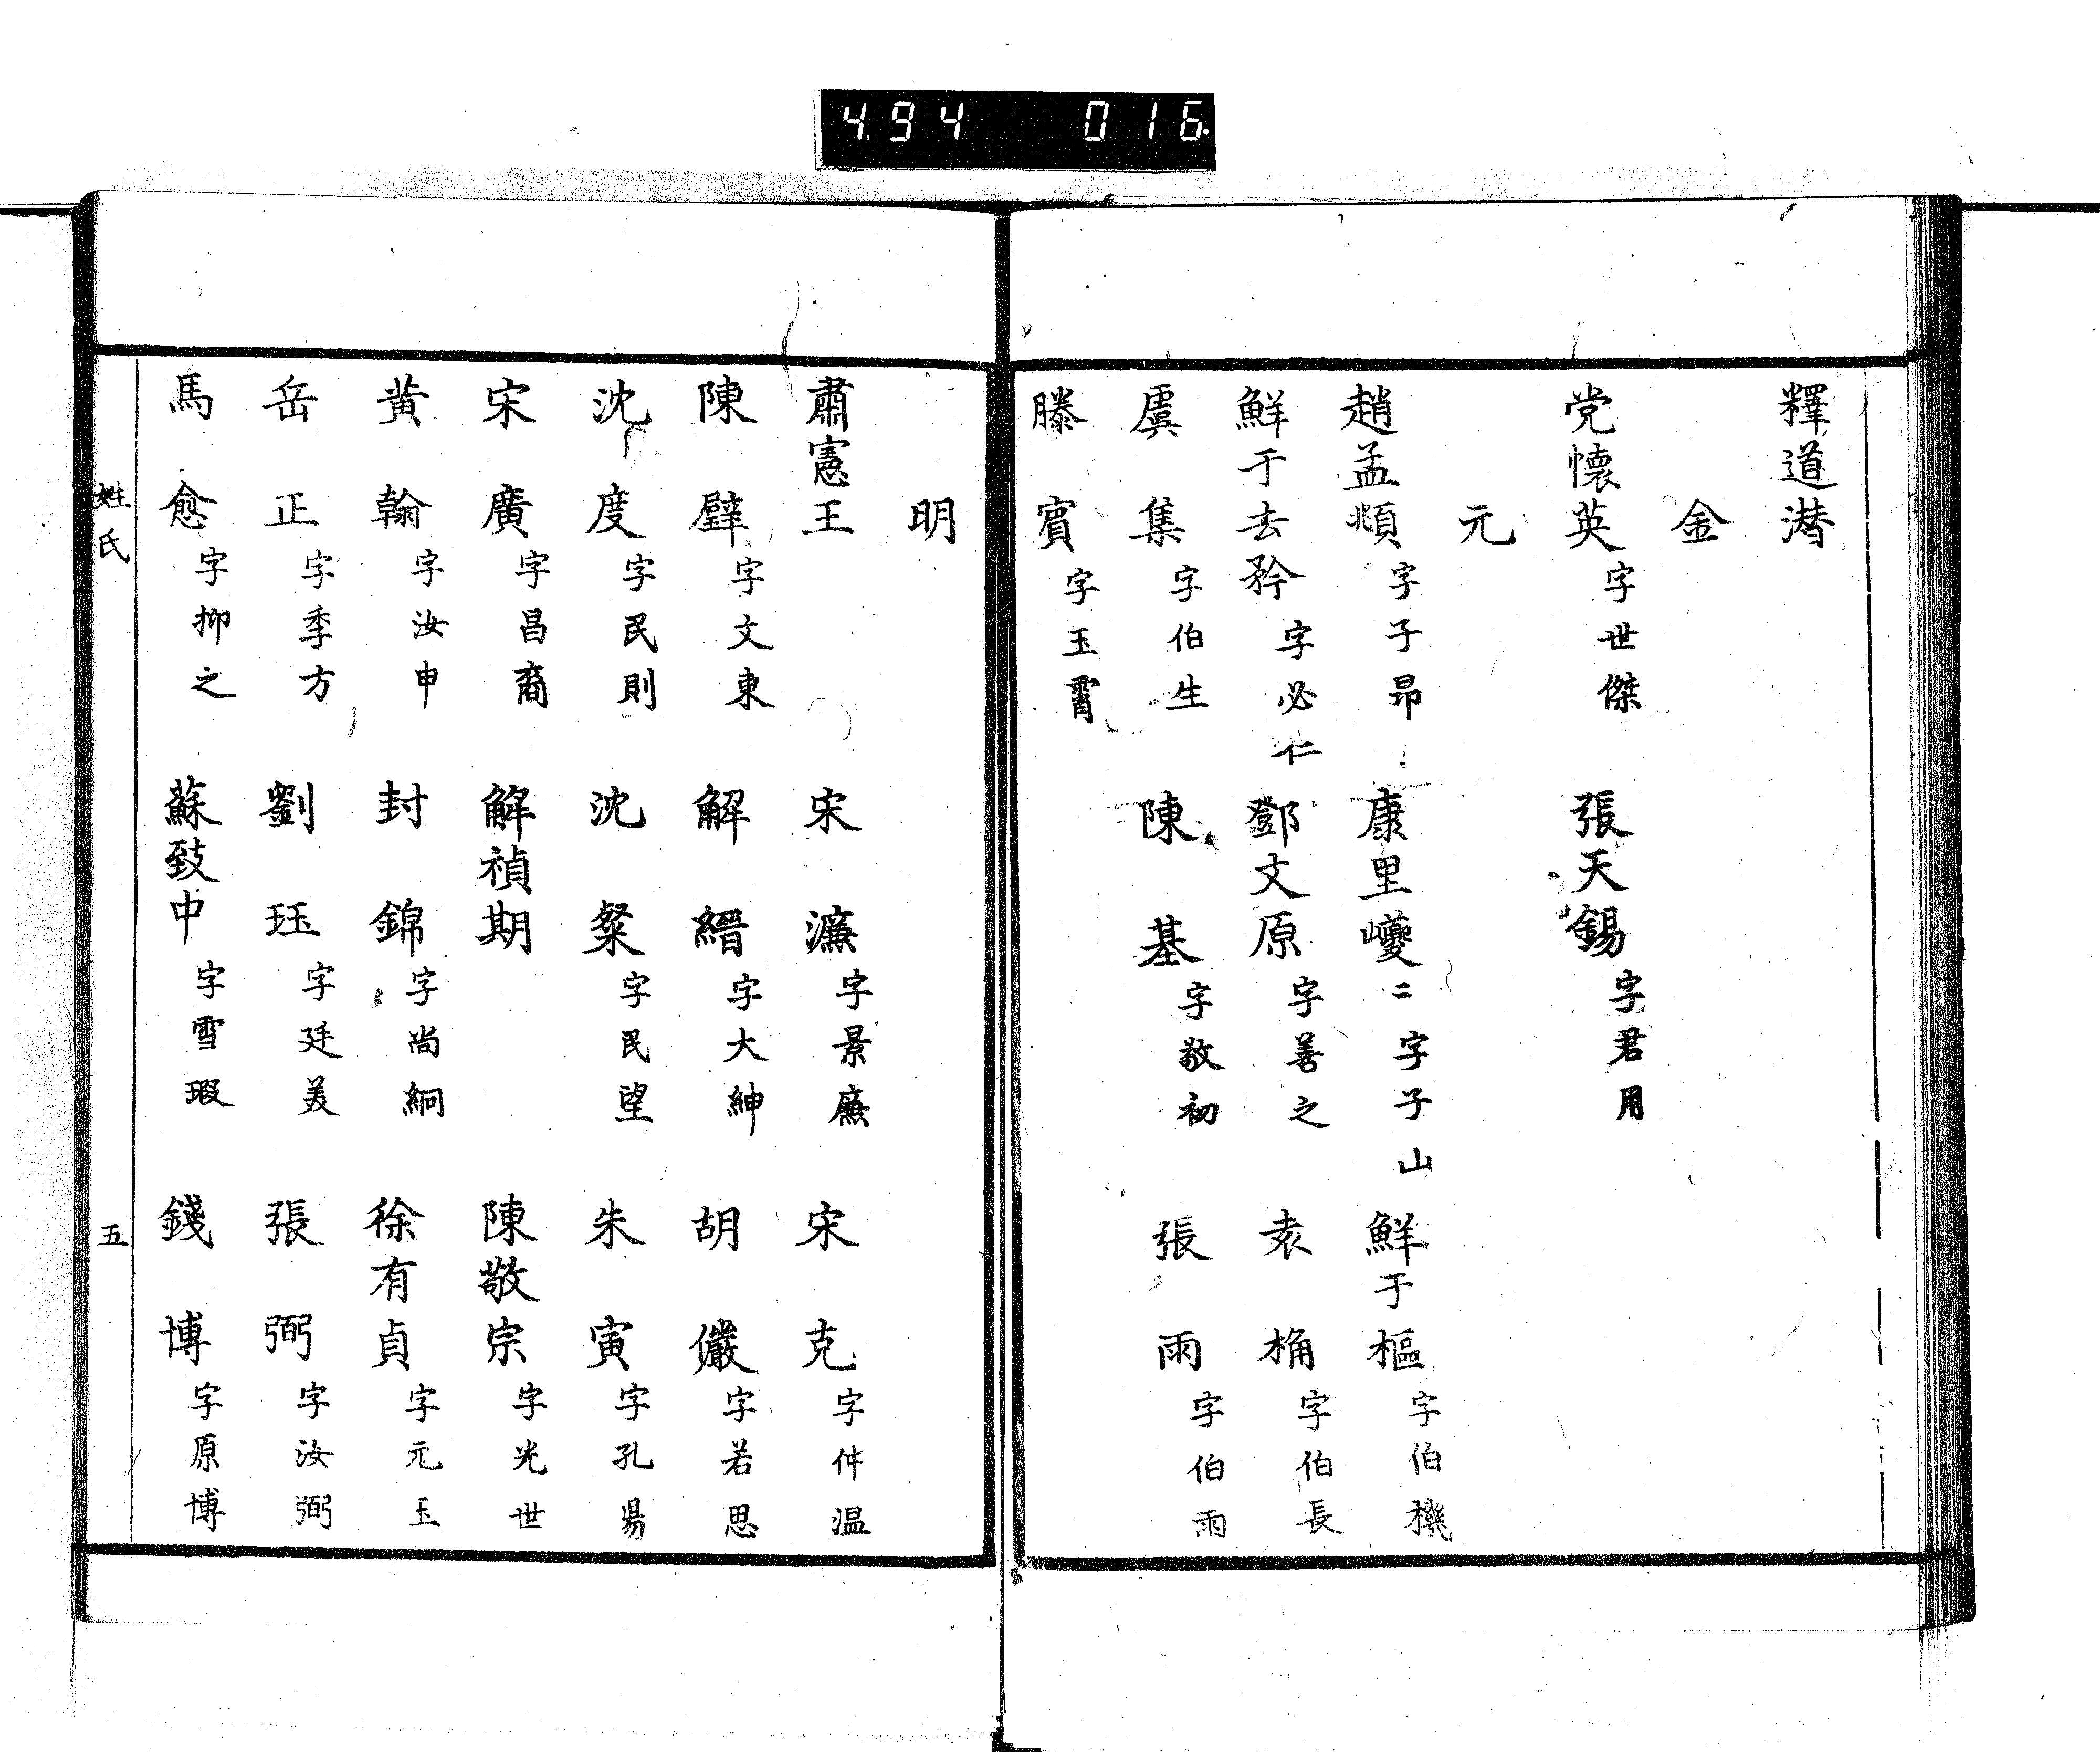 494 016
釋道潜
金
党懷英字世傑 張天錫字君用
元
趙孟頫字子昂 康里巎二字子山 鮮于樞字伯機
鮮于去矜字必仁 鄧文原字善之 袁桷字伯長
虞集字伯生 陳基字敬初 張雨字伯雨
滕賓字玉霄
明
肅憲王 宋濂字景廉 宋克字仲温
陳璧字文東 解縉字大紳 胡儼字若思
沈度字民則 沈粲字民望 朱寅字孔昜
宋廣字昌裔 解禎期 陳敬宗字光世
黄翰字汝申 封錦字尚絅 徐有貞字元玉
岳正字季方 劉珏字廷美 張弼字汝弼
馬愈字抑之 蘇致中字雪瑕 錢博字原博
姓氏 五